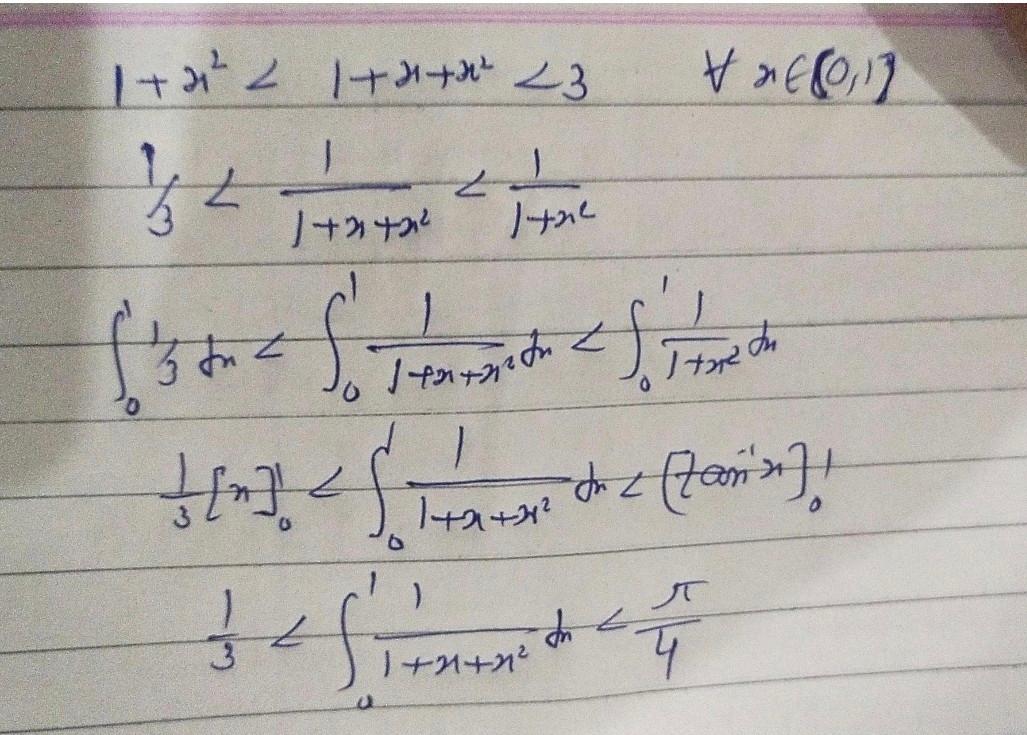 1 + x² < 1 + x + x² < 3 ∀ x ∈ [0,1]
1/3 < 1/(1+x+x²) < 1/(1+x²)
∫₀¹ 1/3 dx < ∫₀¹ 1/(1+x+x²) dx < ∫₀¹ 1/(1+x²) dx
1/3 [x]₀¹ < ∫₀¹ 1/(1+x+x²) dx < [tan⁻¹x]₀¹
1/3 < ∫₀¹ 1/(1+x+x²) dx < π/4